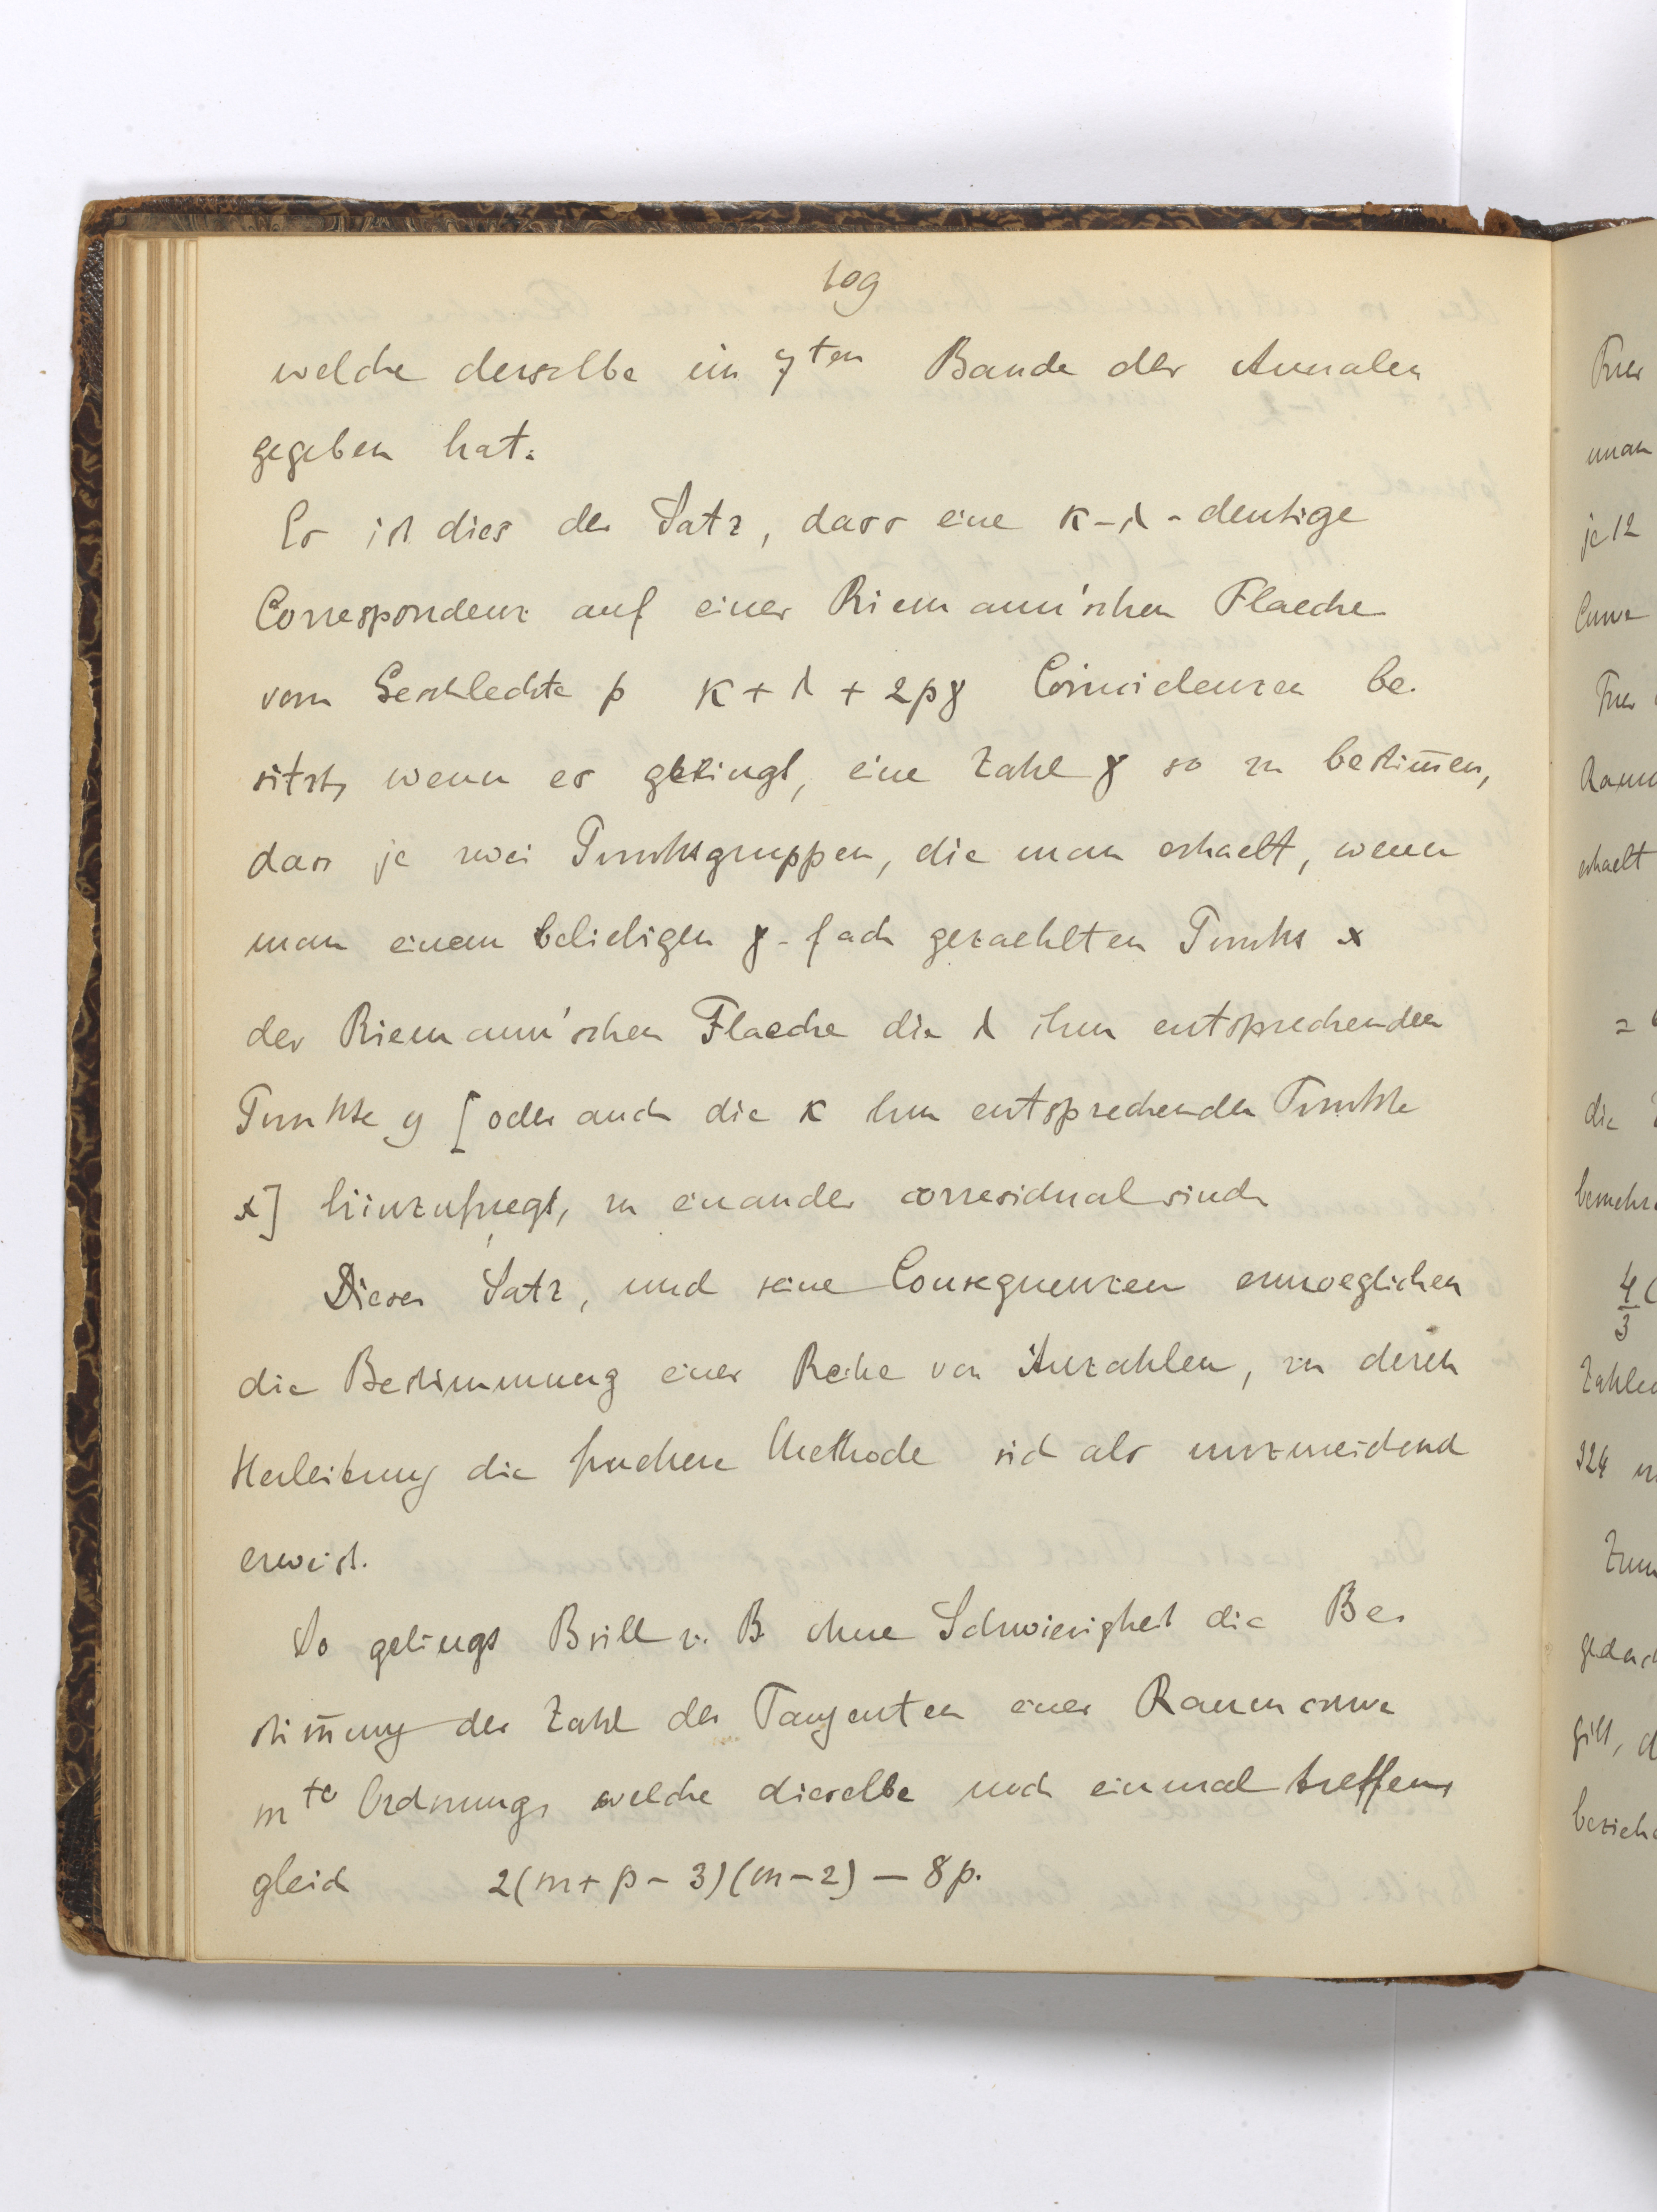 109
welche derselbe im 7ten Bande der Annalen
gegeben hat.
Es ist dies der Satz, dass eine κ-λ-deutige
Correspondenz auf einer Riemann'schen Flaeche
vom Geschlechte p κ + λ + 2pγ Coincidenzen be-
sitzt, wenn es gelingt, eine Zahl γ so zu bestim̅en,
dass je zwei Punktsgruppen, die man erhaelt, wenn
man einem beliebigen γ-fach gezaehlten Punkt x
der Riemann'schen Flaeche die λ ihm entsprechenden
Punkte y [oder auch die κ ihm entsprechenden Punkte
x] hinzufuegt, zu einander corresidual sind.
Dieser Satz, und seine Consequenzen ermoeglichen
die Bestimmung einer Reihe von Anzahlen, zu deren
Herleitung die fruehere Methode sich als unzureichend
erweist.
So gelingt Brill z. B. ohne Schwierigkeit die Be-
stim̅ung der Zahl der Tangenten einer Raumcurve
mte Ordnung, welche dieselbe noch einmal treffen,
gleich 2(m+p-3)(m-2) - 8p.
Fuer
man
je 12
Curve
Fuer
Raum
erhaelt
=
die
bemerk
4/3 (
Zahlen
324
Zum
gedach
gilt, d
bezieh